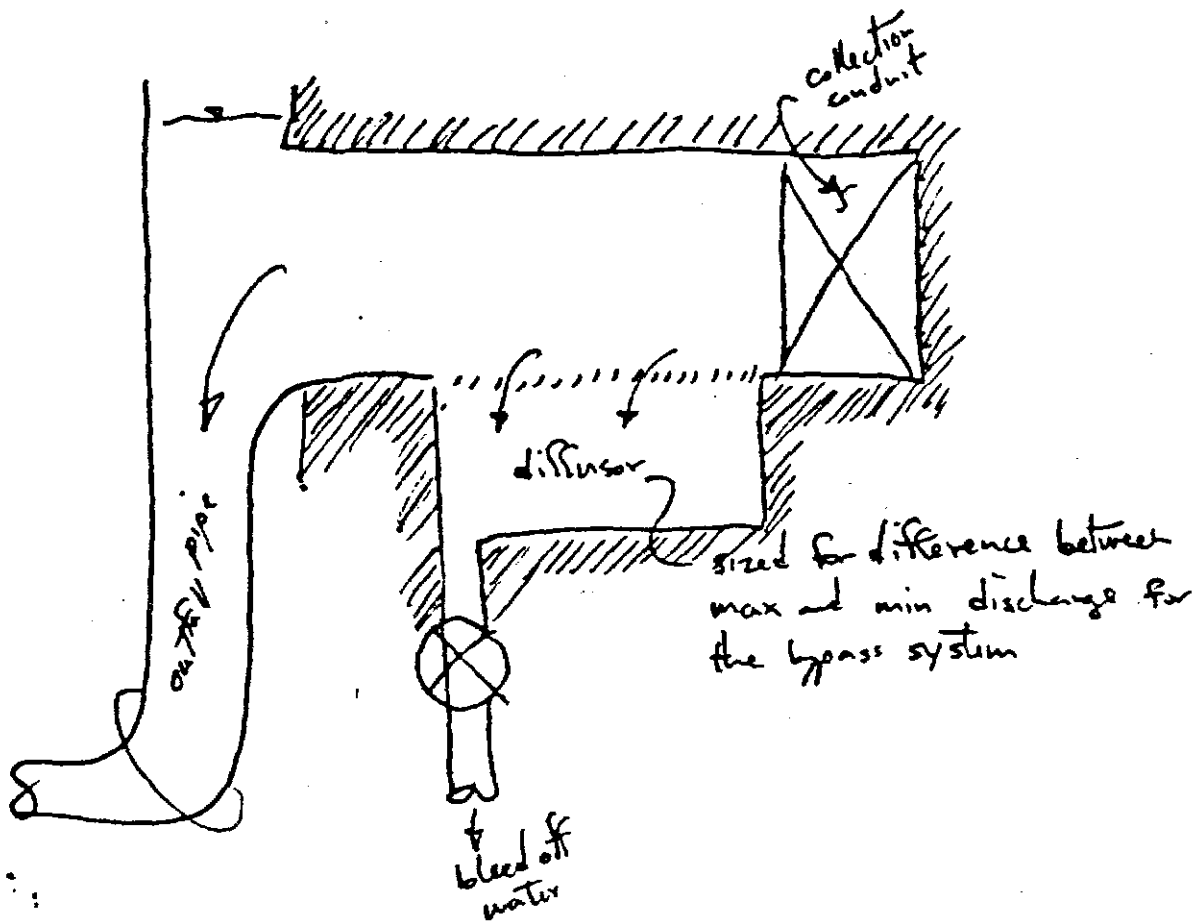 collection
conduit
diffusor
outfall pipe
sized for difference between
max and min discharge for
the bypass system
bleed off
water